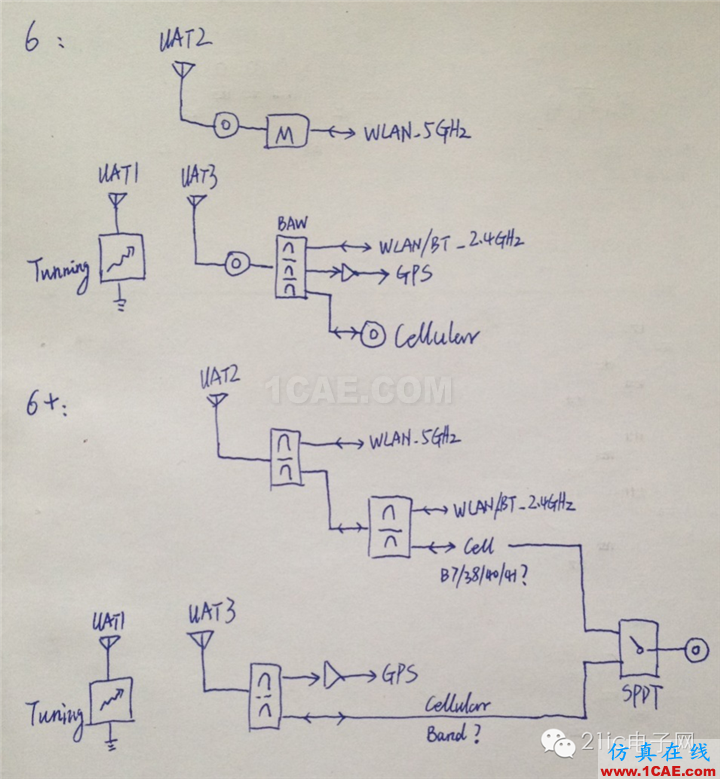 6:
UAT2
M
WLAN-5GHz
UAT1
UAT3
BAW
WLAN/BT_2.4GHz
Tunning
GPS
Cellular
1CAE.COM
6+:
UAT2
WLAN-5GHz
WLAN/BT_2.4GHz
Cell
B7/38/40/41?
UAT1
UAT3
GPS
Tuning
Cellular
Band?
SPDT
21ic电子网
仿真在线
www.1CAE.com